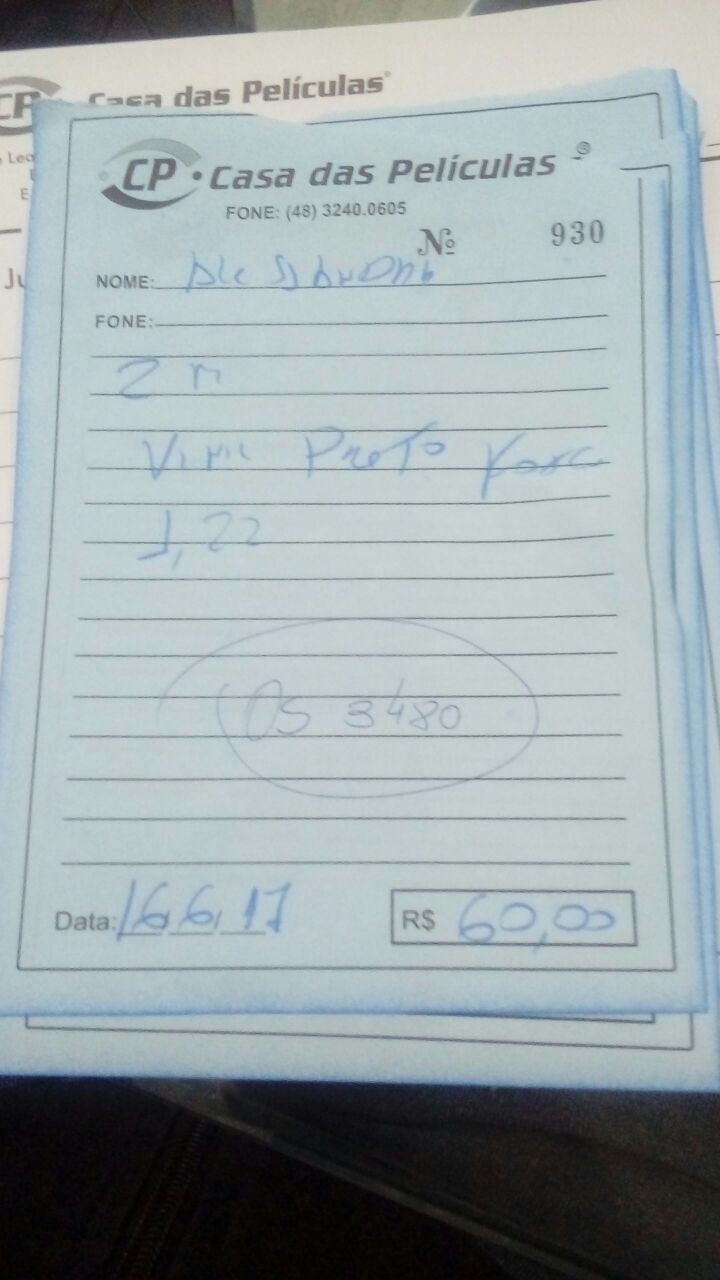 CP Casa das Películas
CP • Casa das Películas ®
FONE: (48) 3240.0605
Nº 930
NOME: Alessandra
FONE:
2 m
Vinil Preto Fosco
1,22
OS 3480
Data: 16,6,17
R$ 60,00